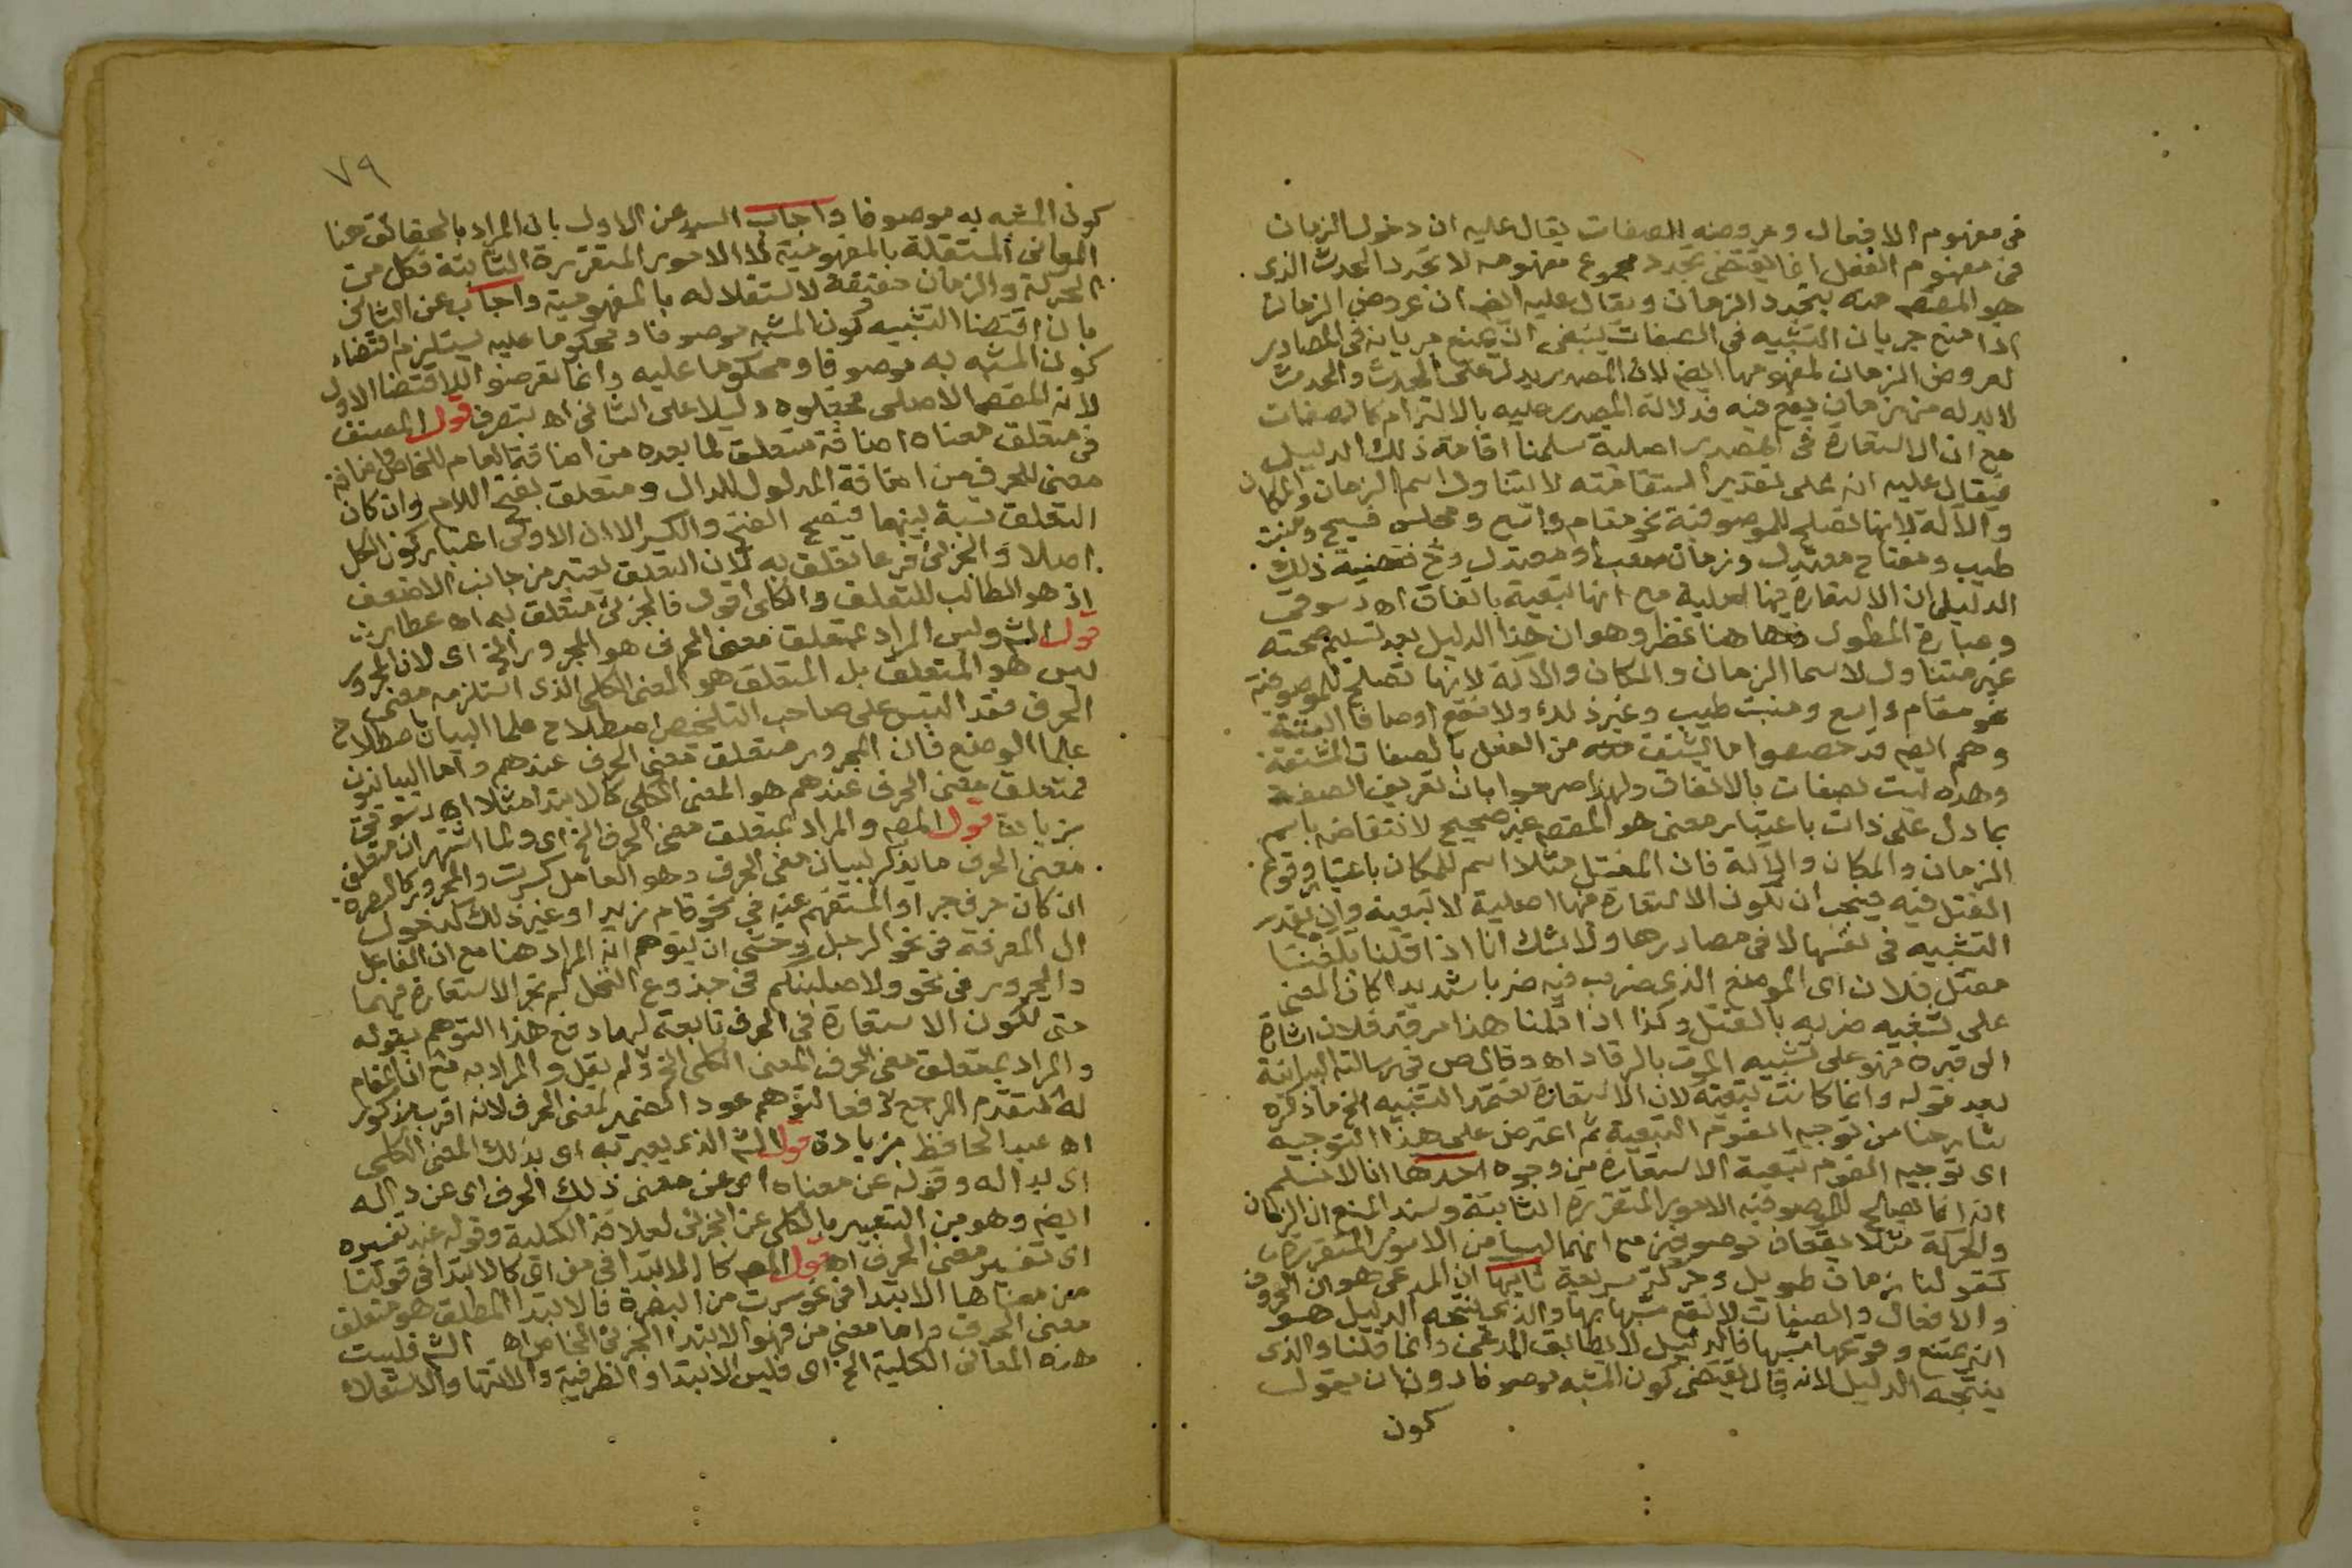 في مفهوم الافعال وعروضه للصفات يقال عليه ان دخول الزمان
في مفهوم الفعل انما يقتضي تجدد مجموع مفهومه لا تجدد الحدث الذي
هو المقصم منه بتجدد الزمان ويقال عليه ايضا ان عروض الزمان
اذا منع جريان التشبيه في الصفات ينبغي ان يمنع جريانه في المصادر
لعروض الزمان لمفهومها ايضا لان المصدر يدل على الحدث والحدث
لا بد له من زمان يقع فيه فدلالة المصدر عليه بالالتزام كالصفات
مع ان الاستعارة في المصدر اصلية سلمنا اقامة ذلك الدليل
فيقال عليه انه على تقدير استقامته لا يتناول اسم الزمان والمكان
والآلة لانها تصلح للموصوفية نحو مقام واسع ومجلس فسيح ومنبت
طيب ومفتاح معتدل وزمان صعب او معتدل وح فقضية ذلك
الدليل ان الاستعارة فيها اصلية مع انها تبعية باتفاق اه دسوقي
وعبارة المطول وهاهنا نظر وهو ان هذا الدليل بعد تسليم صحته
غير متناول لاسما الزمان والمكان والآلة لانها تصلح للموصوفية
نحو مقام واسع ومنبت طيب وغير ذلك ولا تقع اوصافا البتة
وهم ايضا قد خصصوا ما يشتق منه من الفعل بالصفات المشتقة
وهذه ليست بصفات بالاتفاق ولهذا صرحوا بان تعريف الصفة
بما دل على ذات باعتبار معنى هو المقصم غير صحيح لانتقاضه باسم
الزمان والمكان والآلة فان المقتل مثلا اسم للمكان باعتبار وقوع
القتل فيه فيجب ان تكون الاستعارة فيها اصلية لا تبعية وان يقدر
التشبيه في نفسها لا في مصادرها ولا شك انا اذا قلنا بلغنا
مقتل فلان اى الموضع الذي ضرب فيه ضربا شديدا كان المعنى
على تشبيه ضربه بالقتل وكذا اذا قلنا هذا مرقد فلان اشارة
الى قبره فهو على تشبيه الموت بالرقاد اه وقال ص في رسالته البيانية
بعد قوله وانما كانت تبعية لان الاستعارة تعتمد التشبيه الخ ما ذكره
شارحنا من توجيه القوم التبعية ثم اعترض على هذا التوجيه
اى توجيه القوم تبعية الاستعارة من وجوه احدها انا لا نسلم
انه انما يصالح للموصوفية الامور المتقررة الثابتة وسند المنع ان الزمان
والحركة مثلا يقعان موصوفين مع انهما ليسا من الامور المتقررة
كقولنا زمان طويل وحركة سريعة ثانيها ان المدعى هو ان الحروف
والافعال والصفات لا تقع مشبها بها والذي ينتجه الدليل هو
انه يمتنع وقوعها مشبها فالدليل لا يطابق المدعى وانما قلنا والذي
ينتجه الدليل لانه قال يقتضي كون المشبه موصوفا دون ان يقول
كون
٧٩
كون المشبه به موصوفا واجاب السيد عن الاول بان المراد بالحقائق هنا
المعاني المستقلة بالمفهومية لا الامور المتقررة الثابتة فكل من
الحركة والزمان حقيقة لاستقلاله بالمفهومية واجاب عن الثاني
بان اقتضا التشبيه كون المشبه موصوفا ومحكوما عليه يستلزم اقتضاء
كون المشبه به موصوفا ومحكوما عليه وانما تعرضوا للاقتضا الاول
لانه المقصم الاصلى فجعلوه دليلا على الثاني اه بتصرف قول المصنف
في متعلق معناه اضافة متعلق لما بعده من اضافة العام للخاص واضافة
معنى للحرف من اضافة المدلول للدال ومتعلق بفتح اللام وان كان
التعلق نسبة بينهما فيصح الفتح والكسر الا ان الاولى اعتبار كون الكل
اصلا والجزئى فرعا تعلق به لان التعلق يعتبر من جانب الاضعف
اذ هو الطالب للتعلق والكلى اقول فالجزئى متعلق به اه عطار
قول الش وليس المراد بمتعلق معنى الحرف هو المجرور الخ اى لان المجرور
ليس هو المتعلق بل المتعلق هو المعنى الكلى الذي استلزمه معنى
الحرف فقد التبس على صاحب التلخيص اصطلاح علما البيان باصطلاح
علما الوضع فان المجرور متعلق معنى الحرف عندهم واما البيانيون
فمتعلق معنى الحرف عندهم هو المعنى الكلى كالابتدا مثلا اه دسوقي
بزيادة قول المصم والمراد بمتعلق معنى الحرف الخ اى ولما اشتهر ان متعلق
معنى الحرف ما يذكر لبيان معنى الحرف وهو العامل كسرت والمجرور كالبصرة
ان كان حرف جر او المستفهم عنه في نحو قام زيد او غير ذلك كدخول
ال المعرفة في نحو الرجل وخشى ان يتوهم انه المراد هنا مع ان الفاعل
والمجرور في نحو ولاصلبنكم في جذوع النخل لم تجر الاستعارة فيهما
حتى تكون الاستعارة في الحرف تابعة لهما دفع هذا التوهم بقوله
والمراد بمتعلق معنى الحرف المعنى الكلى الخ ولم يقل والمراد به مع ان المقام
له لتقدم المرجع دفعا لتوهم عود الضمير لمعنى الحرف لانه اقرب مذكور
اه عبد الحافظ بزيادة قول الش الذي يعبر به اى بذلك المعنى الكلى
اى بداله وقوله عن معناه اى عن معنى ذلك الحرف اى عن داله
ايضا وهو من التعبير بالكلى عن الجزئى لعلاقة الكلية وقوله عند تفسيره
اى تفسير معنى الحرف اه قول المصم كالابتدا في من اى كالابتدا في قولنا
من معناها الابتدا في نحو سرت من البصرة فالابتدا المطلق هو متعلق
معنى الحرف واما معنى من فهو الابتدا الجزئى الخاص اه الش فليست
هذه المعاني الكلية الخ اى فليس الابتدا والظرفية والانتها والاستعلاء